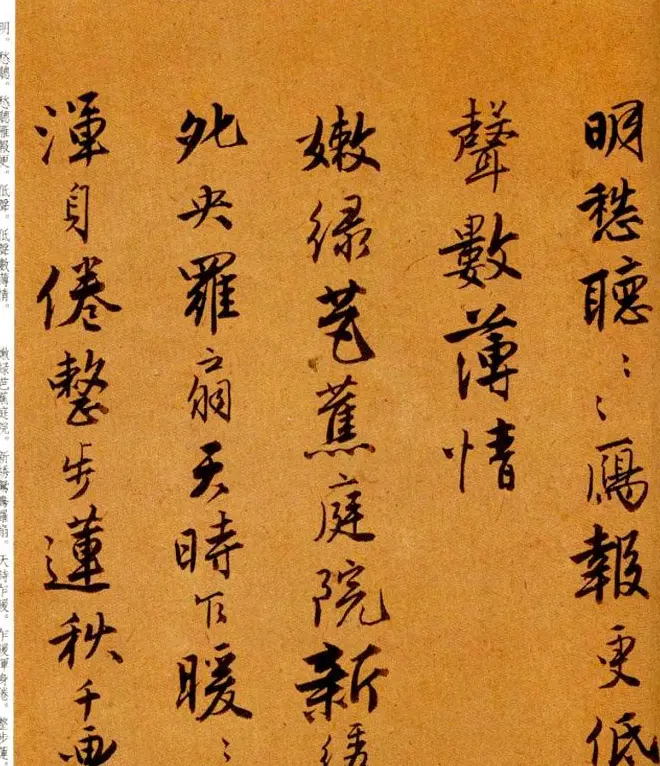 明愁聽〻〻鴈報更低
聲數薄情
嫩緑芭蕉庭院新綉
夗央羅扇天時乍暖〻
渾身倦整步蓮秋千画
明。愁聽。愁聽雁報更。低聲。低聲數薄情。　嫩綠芭蕉庭院。新綉鴛鴦羅扇。天時乍暖。乍暖渾身倦。整步蓮。